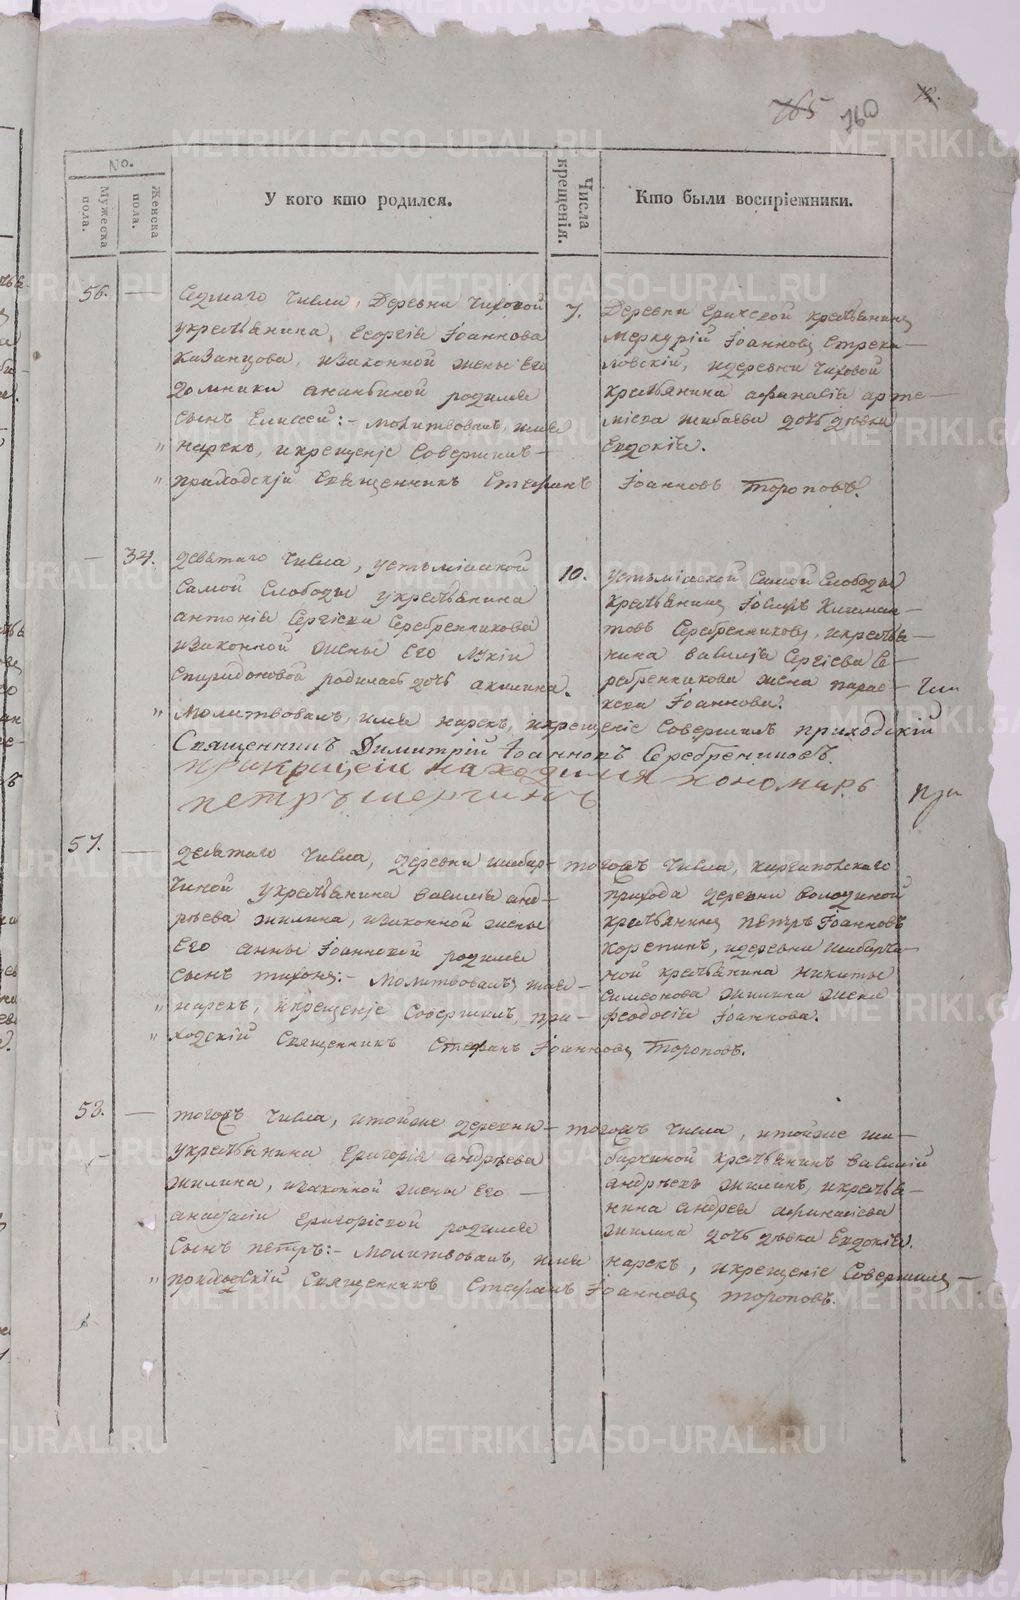 765 760
No.
Мужеска пола.
Женска пола.
У кого кто родился.
Числа крещенія.
Кто были воспріемники.
56. — Седмаго числа, деревни Чиховой
у крестьянина, Георгія Іоаннова
Казанцова, и законной жены его
Домники Ананьиной родился
сынъ Елиссей:- молитвовалъ, имя
нарекъ, и крещеніе совершилъ
приходскій Священникъ Стефанъ Іоанновъ Тороповъ.
7. Деревни крестьянинъ
Меркурій Іоанновъ Стрека-
ловскій, и деревни Чиховой
крестьянина Афанасія Арте-
міева дочь дѣвка
Евдокія.
— 34. девятаго числа, Устьміасской
самой слободы у крестьянина
Антонія Сергіева Серебренникова
и законной жены его Лукіи
Спиридоновой родилась дочь Акилина.
10. Устьміасской самой слободы
крестьянинъ
товъ Серебренниковъ, и крестья-
нина Василія Сергіева Се-
ребренникова жена Парас-
кева Іоаннова.
молитвовалъ, имя нарекъ, и крещеніе совершилъ приходскій
Священникъ Димитрій Іоанновъ Серебренниковъ.
при крещеніи находился пономарь
Петръ
57. — девятаго числа, деревни Шабар-
чиной у крестьянина Василія Анд-
рѣева Жилина, и законной жены
его Анны Іоанновой родился
сынъ Тихонъ:- молитвовалъ, имя
нарекъ, и крещеніе совершилъ, при-
ходскій Священникъ Стефанъ Іоанновъ Тороповъ.
тогожъ числа, Каргапольскаго
прихода деревни Володиной
крестьянинъ Петръ Іоанновъ
и деревни Шабарчи-
ной крестьянина Никиты
Симеонова Жилина жена
Феодосія Іоаннова.
58. — тогожъ числа, и тойже деревни
у крестьянина Григорія Андрѣева
Жилина, и законной жены его
Анастасіи Григорьевой родился
сынъ Петръ:- молитвовалъ, имя нарекъ, и крещеніе совершилъ
приходскій Священникъ Стефанъ Іоанновъ Тороповъ.
тогожъ числа, и тойже Ша-
барчиной крестьянинъ Василій
Андрѣевъ Жилинъ, и крестья-
нина Андрея Афанасіева
Жилина дочь дѣвка Евдокія.
METRIKI.GASO-URAL.RU